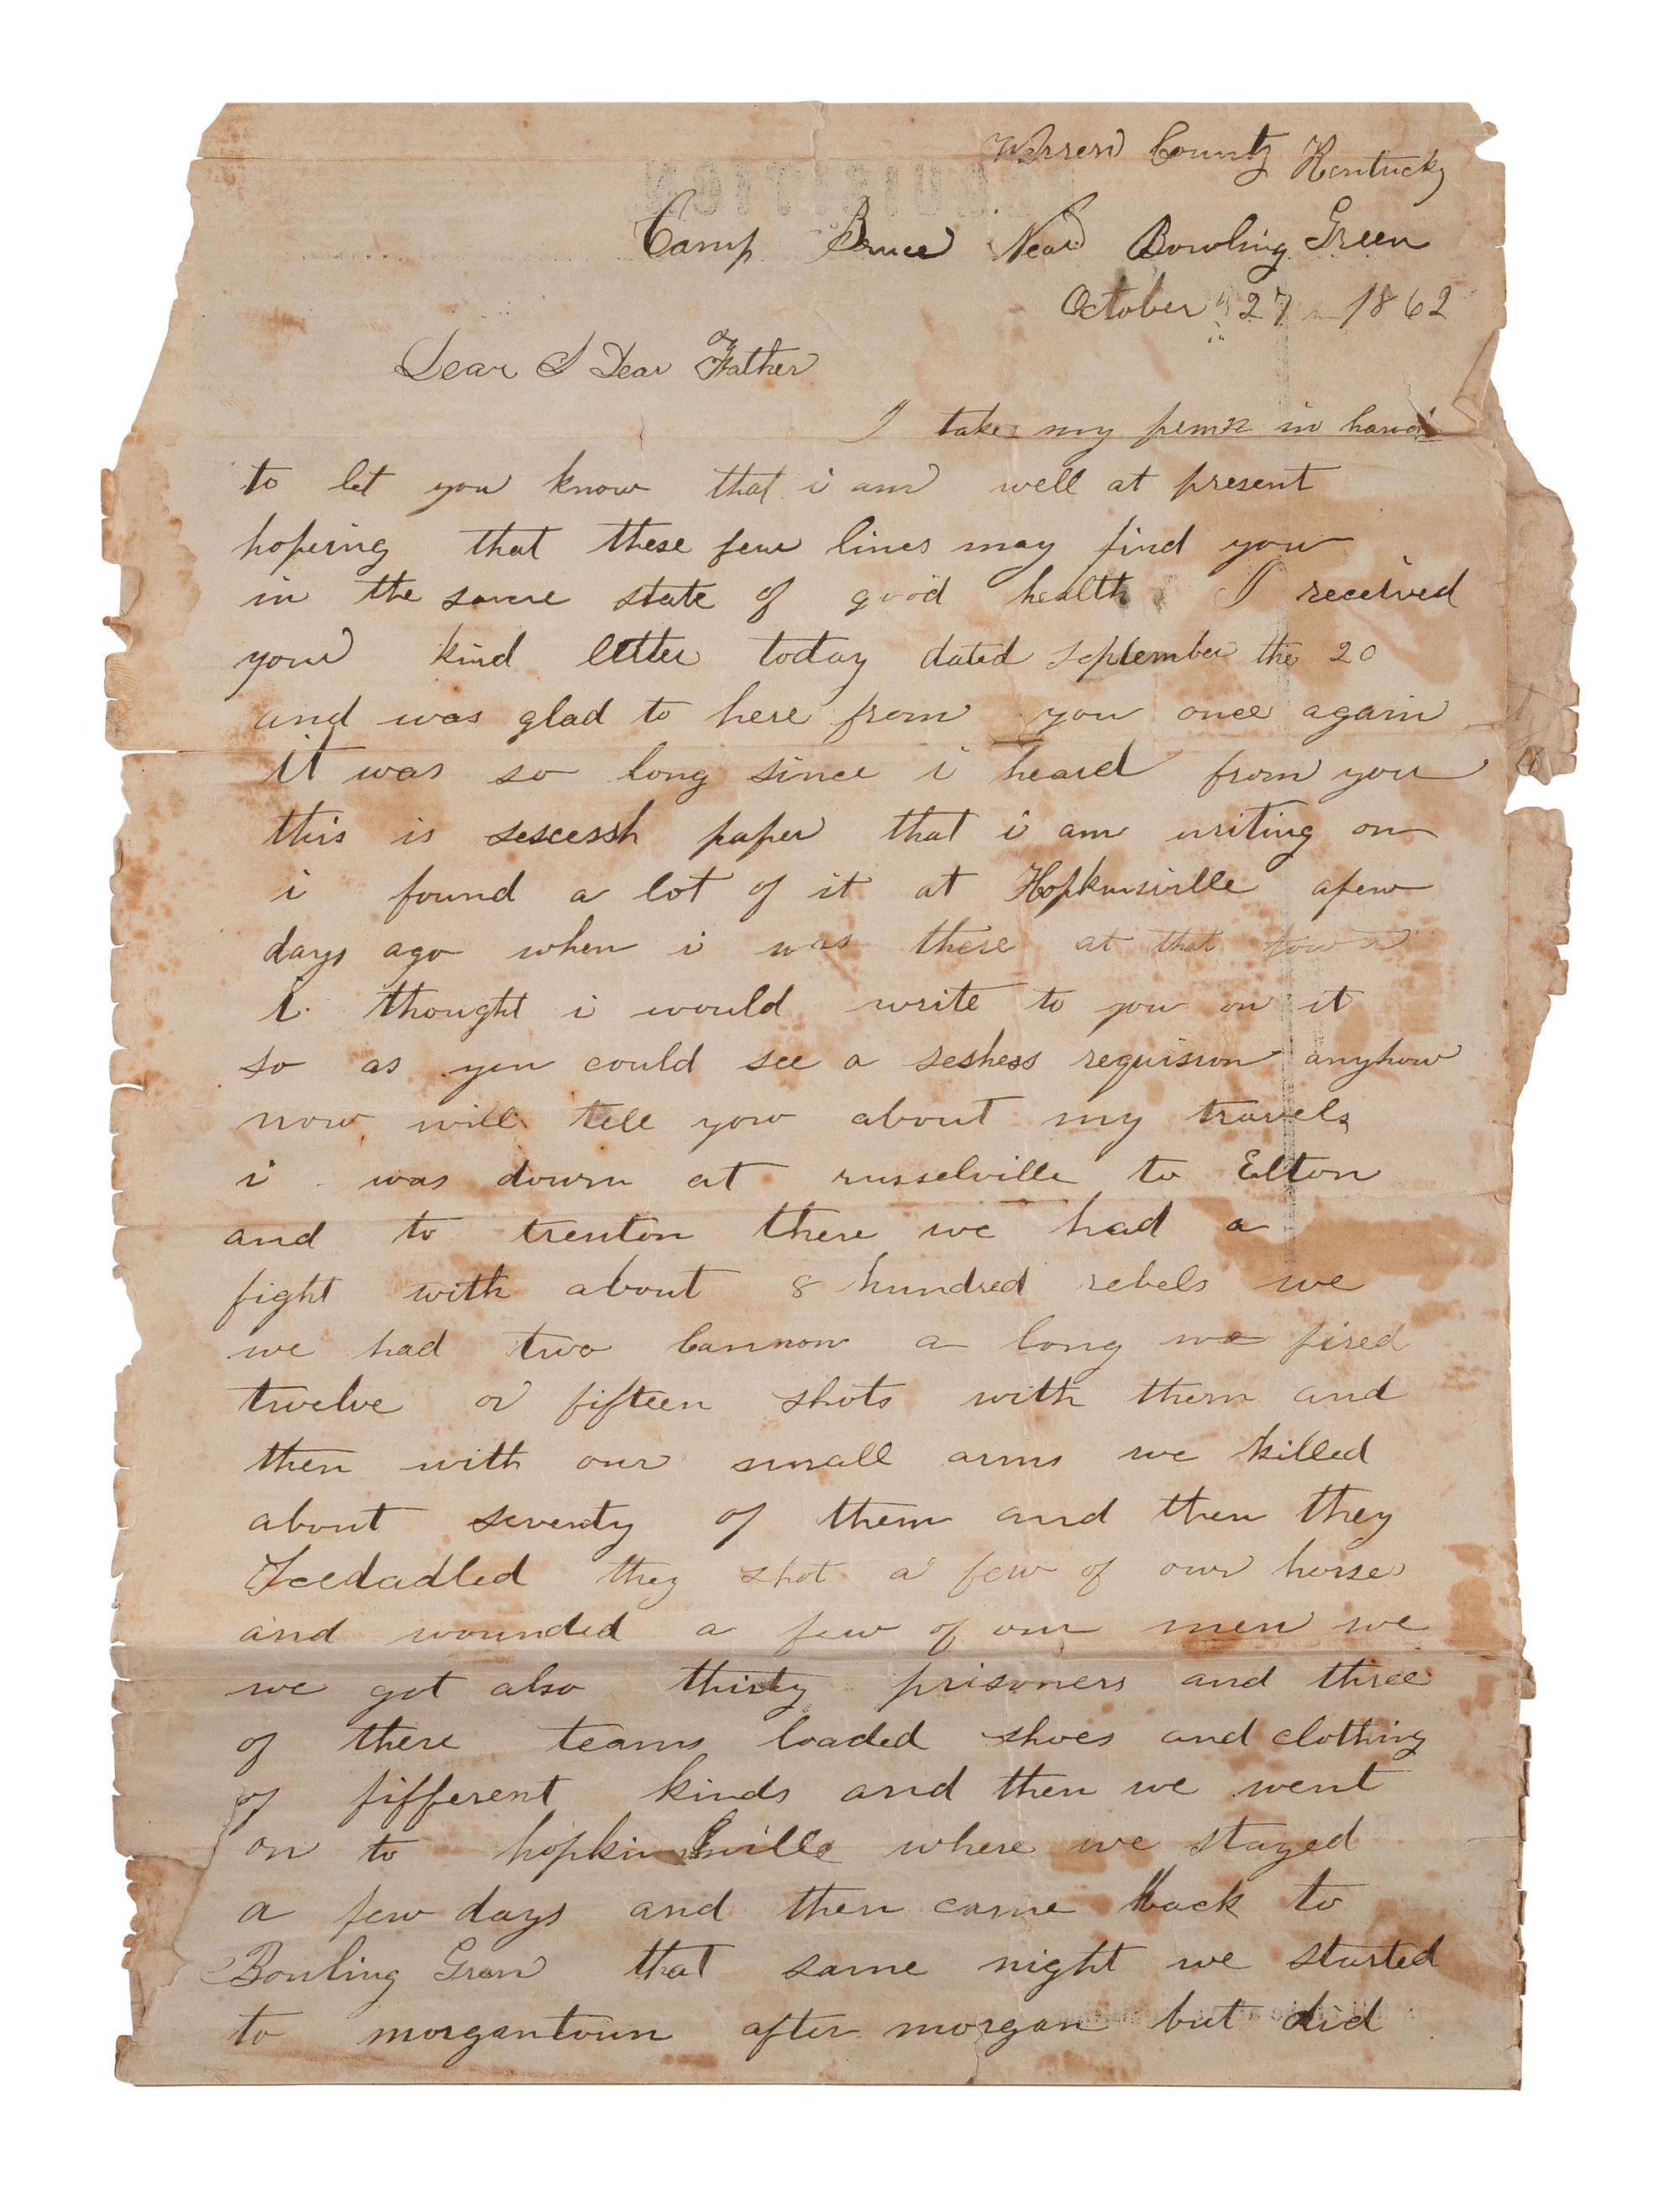 Warren County Kentucky
Camp Bruce Near Bowling Green
October 27 1862
Dear Dear Father
I take my penn in hand
to let you know that i am well at present
hopeing that these few lines may find you
in the same state of good health I received
your kind letter today dated september the 20
and was glad to here from you once again
it was so long since i heard from you
this is sescessh paper that i am writing on
i found a lot of it at Hopkinsville afew
days ago when i was there at that town
i thought i would write to you on it
so as you could see a seshess requision anyhow
now will tell you about my travels
i was down at russelville to Elton
and to trenton there we had a
fight with about 8 hundred rebels we
we had two Cannon a long we fired
twelve or fifteen shots with them and
then with our small arms we killed
about seventy of them and then they
Scedadled they shot a few of our horses
and wounded a few of our men we
we got also thirty prisoners and three
of there teams loaded shoes and clothing
of fifferent kinds and then we went
on to hopkinsville where we stayed
a few days and then came back to
Bowling Gren that same night we started
to morgantown after morgan but did